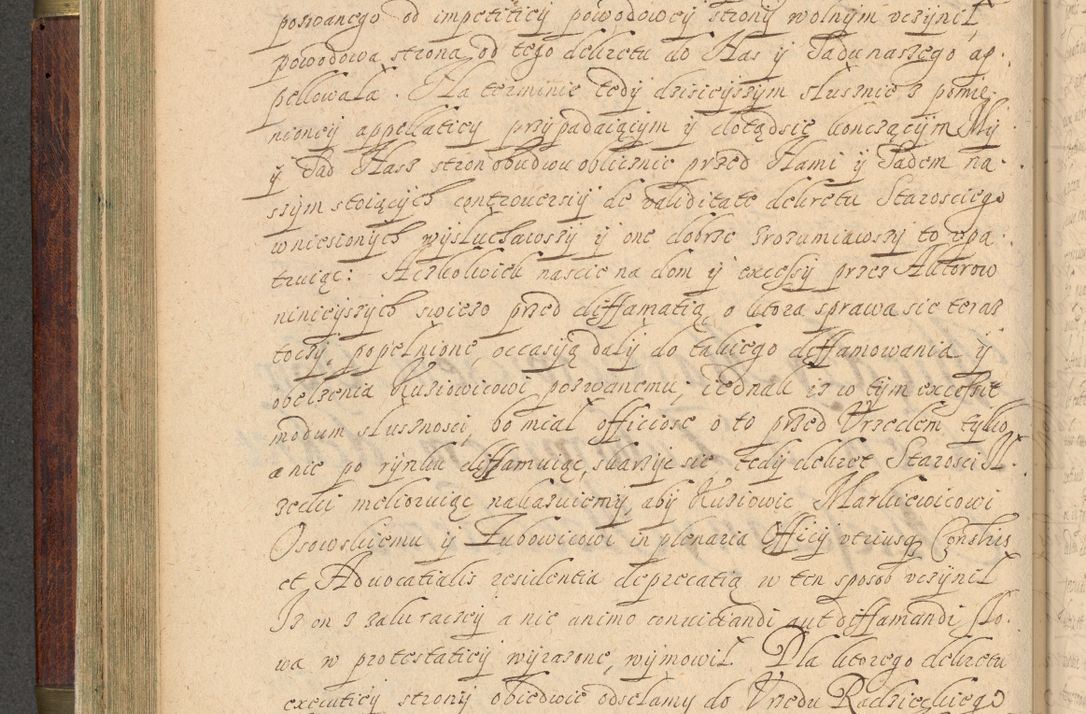 pozwanego od impetitiey powodowey strony wolnym uczynił,
powodowa strona od tego dekretu do Nas y Sadu naszego ap-
pellowała. Na terminie tedy dzisieyszym słusznie z pomie-
nioney appellatiey przypadaiącym y dotądsię konczącym My
y Sąd Nasz stron obudwu oblicznie przed Nami y Sądem na-
szym stoiących controversiy de validitate dekretu Starosciego
wniesionych wysłuchawszy y one dobrze zrozumiawszy to upa-
truiąc: Aczkolwiek naście na dom y excessy przez Aktorow
ninieyszych swiezo przed diffamatią, o ktora sprawa sie teraz
toczy, popełnione, occasyą dały do takiego diffamowania y
obelzenia Kusiowicowi pozwanemu; iednak iz w tym excessit
modum słusznosci, bo miał officiose o to przed Urzedem tylko
a nie po rynku diffamuiąc, skarzyc sie tedy dekret Starosci N-
zecki meliorując nakazuiemy, aby Kusiowic Markiewicowi
Osowskiemu y Zubowicowi in plenaria Officij utriusq Conslris
et Advocatialis residentia deprecatią w ten sposob uczynił
Iz on z zalu raczey a nie animo convictandi aut diffamandi sło-
wa w protestatiey wyrazone, wymowił. Dla ktorego dekretu
executiey strony obiedwie odsełamy do Urzedu Radzieckiego